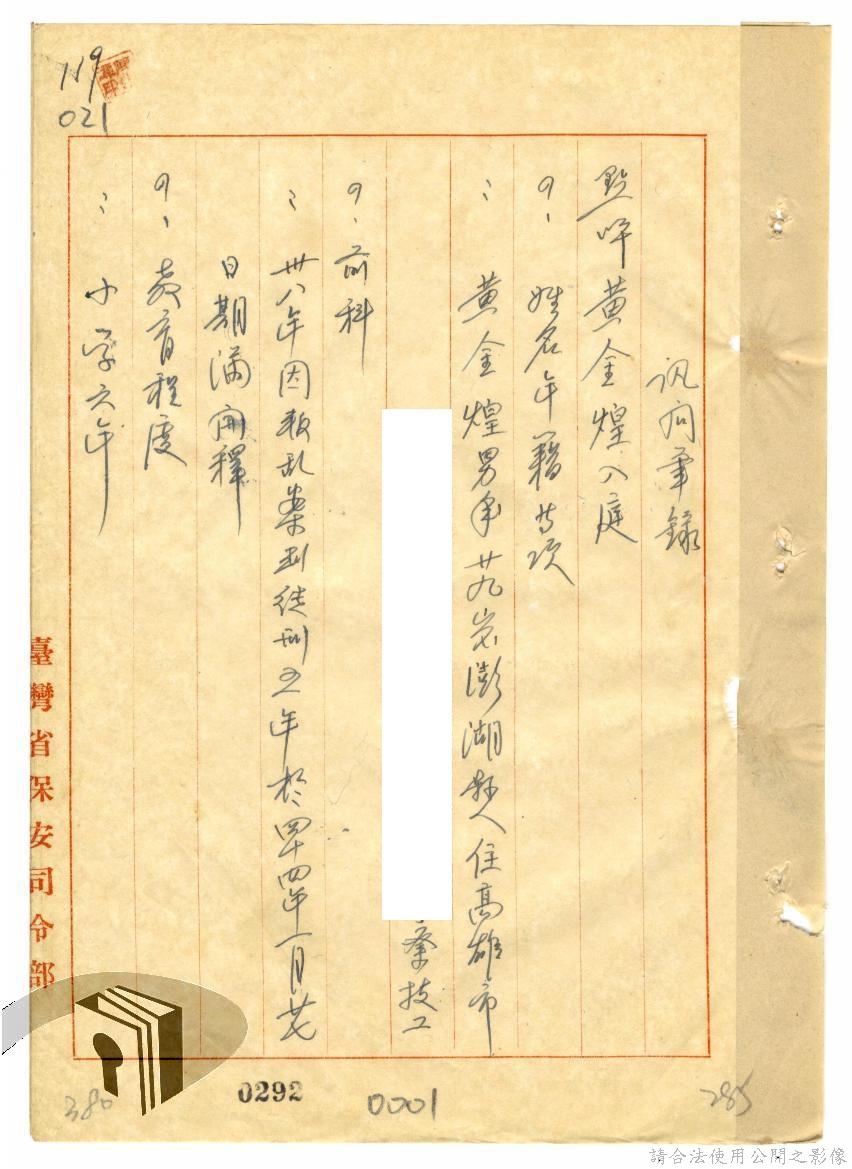 119
021
訊问筆錄
點呼黃金煌入庭
問、姓名年籍等項
：黃金煌男年廿九岁澎湖縣人住高雄市
業技工
問、前科
：卅八年因叛乱案判徒刑五年於四十四年一月廿
日期滿開釋
問、教育程度
：小学六年
臺灣省保安司令部
380
0292
0001
285
請合法使用公開之影像